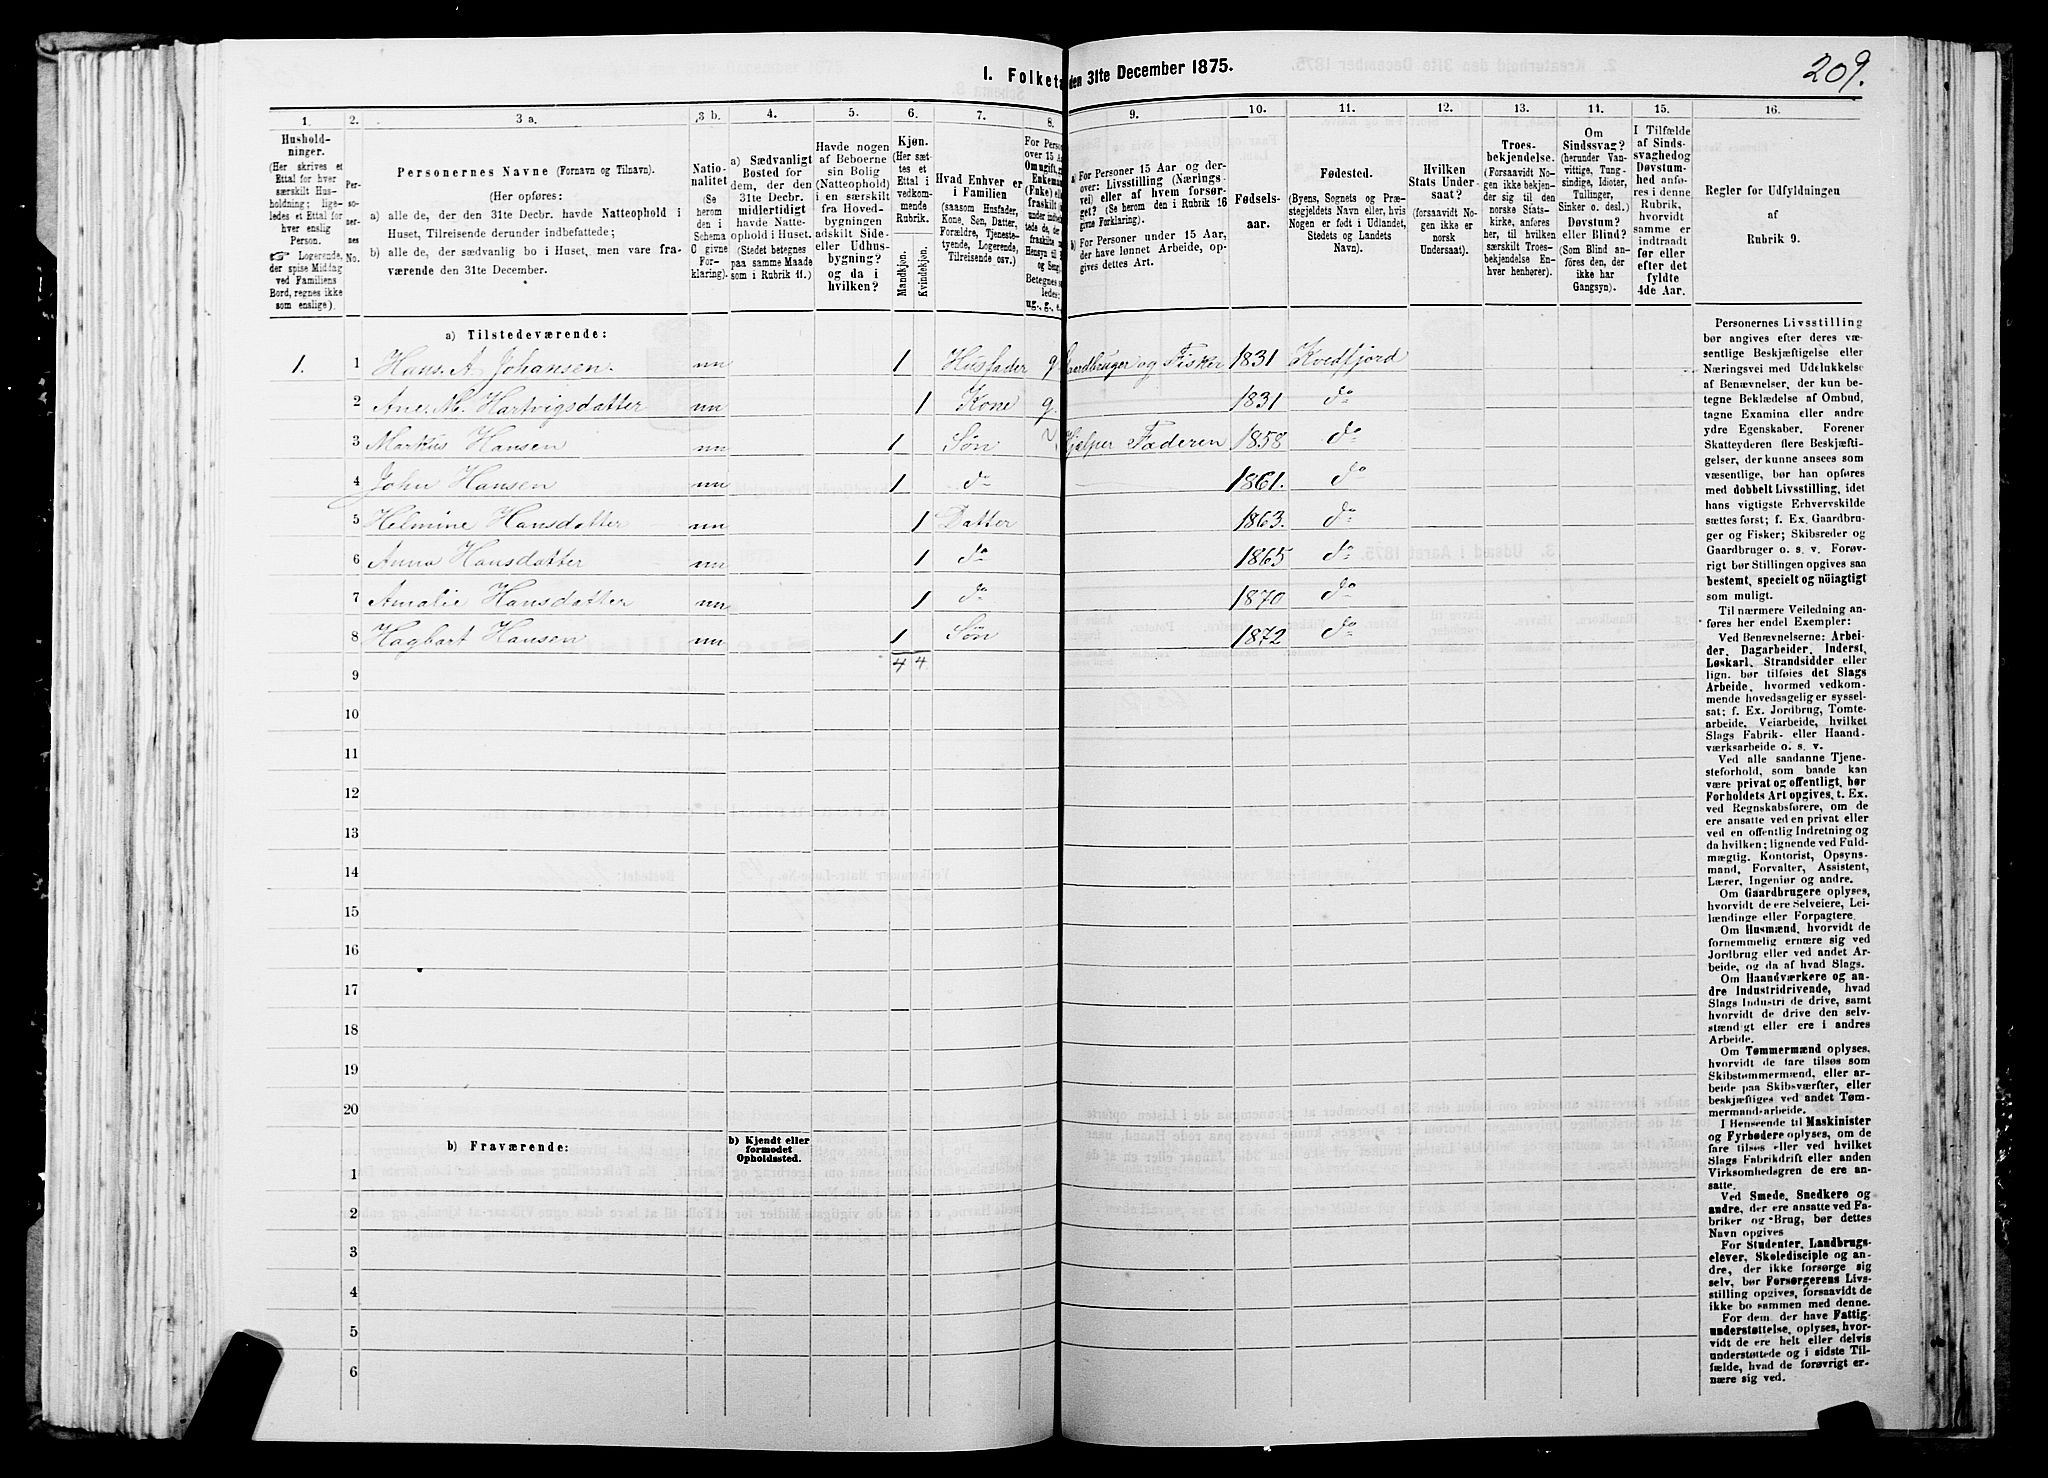 209.
I. Folketæ den 31te December 1875.
1. 2. 3 a. 3 b. 4. 5. 6. 7. 8. 9. 10. 11. 12. 13. 14. 15. 16.
Hushold-
ninger.
(Her skrives et
Ettal for hver
særskilt Hus-
holdning; lige-
ledes et Ettal for
hver enslig
Person.
☞ Logerende,
der spise Middag
ved Familiens
Bord, regnes ikke
som enslige).
Per-
so-
ner-
nes
No.
Personernes Navne (Fornavn og Tilnavn).
(Her opføres:
a) alle de, der den 31te Decbr. havde Natteophold i
Huset, Tilreisende derunder indbefattede;
b) alle de, der sædvanlig bo i Huset, men vare fra-
værende den 31te December.)
Natio-
nalitet
(Se
herom
den i
Schema
O givne
For-
klaring).
a) Sædvanligt
Bosted for
dem, der den
31te Decbr.
midlertidigt
havde Natte-
ophold i Huset.
(Stedet betegnes
paa samme Maade
som i Rubrik 11.)
Havde nogen
af Beboerne
sin Bolig
(Natteophold)
i en særskilt
fra Hoved-
bygningen
adskilt Side-
eller Udhus-
bygning?
og da i
hvilken?
Kjøn.
(Her sæt-
tes et
Ettal i
vedkom-
mende
Rubrik.
Mandkjøn.
Kvindekjøn.
Hvad Enhver er
i Familien
(saasom Husfader,
Kone, Søn, Datter,
Forældre, Tjeneste-
tyende, Logerende,
Tilreisende osv.)
For Person
over 15 Aar
Omugift, g
Enkeman
(Fake) el
fraskilt
Betegnes s
ledes:
ug., g., e.
a) For Personer 15 Aar og der-
over: Livsstilling (Nærings-
vei) eller af hvem forsør-
get? (Se herom den i Rubrik 16
givne Forklaring).
b) For Personer under 15 Aar,
der have lønnet Arbeide, op-
gives dettes Art.
Fødsels-
aar.
Fødested.
(Byens, Sognets og Præ-
stegjeldets Navn eller, hvis
Nogen er født i Udlandet,
Stedets og Landets
Navn).
Hvilken
Stats Under-
saat?
(forsaavidt No-
gen ikke er
norsk
Undersaat).
Troes-
bekjendelse.
(Forsaavidt No-
gen ikke bekjen-
der sig til den
norske Stats-
kirke, anføres
her, til hvilken
særskilt Troes-
bekjendelse En-
hver henhører).
Om
Sindssvag?
(herunder Van-
vittige, Tung-
sindige, Idioter,
Tullinger,
Sinker o. desl.)
Døvstum?
eller Blind?
(Som Blind an-
føres den, der
ikke har
Gangsyn).
I Tilfælde
af Sinds-
svaghedog
Døvstum-
hed anfø-
res i denne
Rubrik,
hvorvidt
samme er
indtraadt
før eller
efter det
fyldte
4de Aar.
Regler for Udfyldningen
af
Rubrik 9.
a) Tilstedeværende:
1. 1 Hans. A Johansen. nn 1 Husfader g. Gaardbruger og Fisker 1831 Kvedfjord
2 Ane. M. Hartvigsdatter nn 1 Kone g. 1831 do
3 Markus Hansen nn 1 Søn Hjelper Faderen 1858 do
4 John Hansen nn 1 do 1861. do
5 Helmine Hansdatter nn 1 Datter 1863. do
6 Anna Hansdatter nn 1 do 1865 do
7 Amalie Hansdatter nn 1 do 1870 do
8 Hagbart Hansen nn 1 Søn 1872 do
4 4
9
10
11
12
13
14
15
16
17
18
19
20
b) Fraværende:
b) Kjendt eller
formodet
Opholdssted.
1
2
3
4
5
6
Personernes Livsstilling
bør angives efter deres væ-
sentlige Beskjæftigelse eller
Næringsvei med Udelukkelse
af Benævnelser, der kun be-
tegne Beklædelse af Ombud,
tagne Examina eller andre
ydre Egenskaber. Forener
Skatteyderen flere Beskjæfti-
gelser, der kunne ansees som
væsentlige, bør han opføres
med dobbelt Livsstilling, idet
hans vigtigste Erhvervskilde
sættes først; f. Ex. Gaardbru-
ger og Fisker; Skibsreder og
Gaardbruger o. s. v. Forøv-
rigt bør Stillingen opgives saa
bestemt, specielt og nöiagtigt
som muligt.
Til nærmere Veiledning an-
føres her endel Exempler:
Ved Benævnelserne: Arbei-
der, Dagarbeider, Inderst,
Løskarl, Strandsidder eller
lign. bør tilføies det Slags
Arbeide, hvormed vedkom-
mende hovedsagelig er syssel-
sat; f. Ex. Jordbrug, Tomte-
arbeide, Veiarbeide, hvilket
Slags Fabrik- eller Haand-
værksarbeide o. s. v.
Ved alle saadanne Tjene-
steforhold, som baade kan
være privat og offentligt, bør
Forholdets Art opgives, t. Ex.
ved Regnskabsførere, om de
ere ansatte ved en privat eller
ved en offentlig Indretning og
da hvilken; lignende ved Fuld-
mægtig, Kontorist, Opsyns-
mand, Forvalter, Assistent,
Lærer, Ingeniør og andre.
Om Gaardbrugere oplyses,
hvorvidt de ere Selveiere, Lei-
lændinge eller Forpagtere.
Om Husmænd, hvorvidt de
fornemmelig ernære sig ved
Jordbrug eller ved andet Ar-
beide, og da af hvad Slags.
Om Haandværkere og an-
dre Industridrivende, hvad
Slags Industri de drive, samt
hvorvidt de drive den selv-
stændigt eller ere i andres
Arbeide.
Om Tømmermænd oplyses,
hvorvidt de fare tilsøs som
Skibstømmermænd, eller ar-
beide paa Skibsværfter, eller
beskjæftiges ved andet Tøm-
mermand-arbeide.
I Henseende til Maskinister
og Fyrbødere oplyses, om de
fare tilsøs eller ved hvilket
Slags Fabrikdrift eller anden
Virksomhedsgren de ere an-
satte.
Ved Smede, Snedkere og
andre, der ere ansatte ved Fa-
briker og Brug, bør dettes
Navn opgives
For Studenter, Landbrugs-
elever, Skoledisciple og an-
dre, der ikke forsørge sig
selv, bør Forsørgerens Livs-
stilling opgives, forsaavidt de
ikke bo sammen med denne.
For dem, der have Fattig-
understøttelse, oplyses, hvor-
vidt de ere helt eller delvis
understøttede og i sidste Til-
fælde, hvad de forøvrigt er-
nære sig ved.